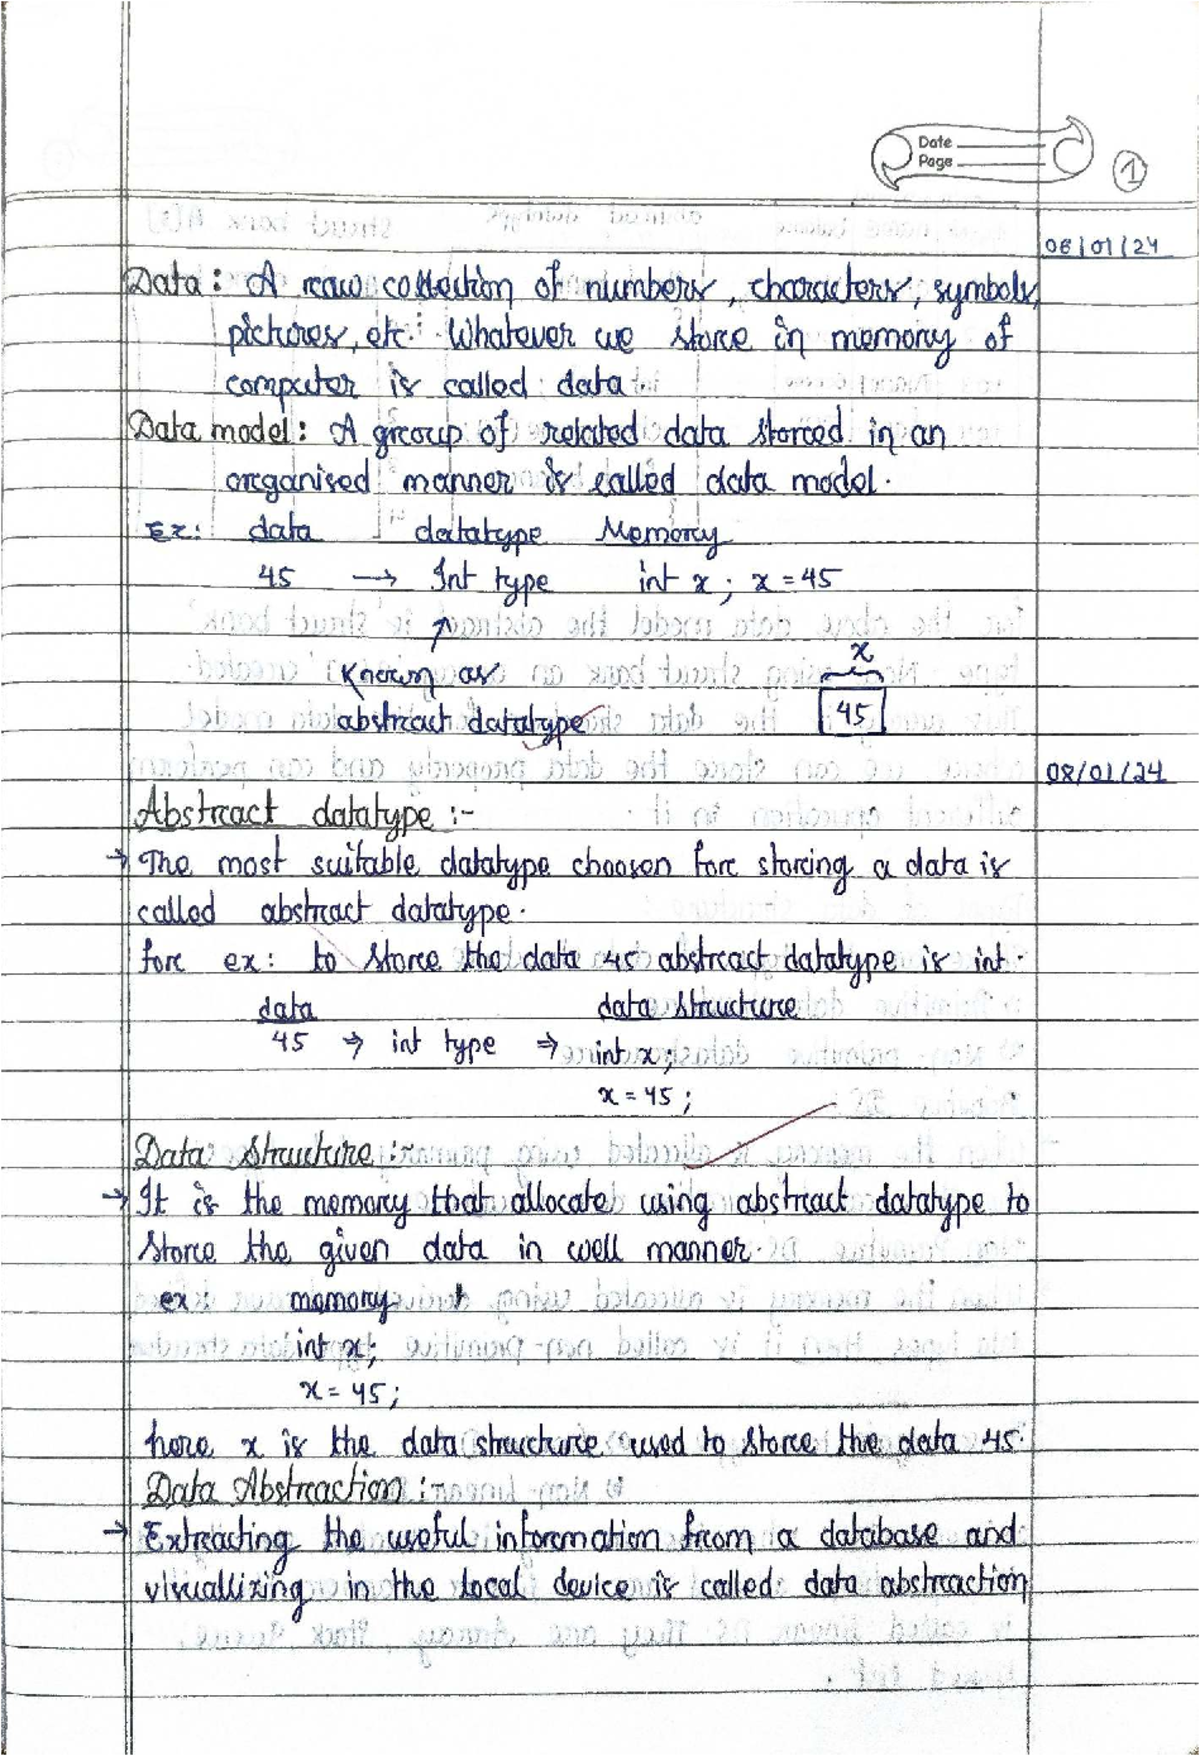 Date
Page
1
06/01/24
Data: A raw collection of numbers, characters, symbols,
pictures, etc. Whatever we store in memory of
computer is called data
Data model: A group of related data stored in an
organised manner is called data model.
Ex: data datatype Memory
45 → Int type int x; x = 45
↑
Known as x
abstract datatype 45
08/01/24
Abstract datatype :-
→ The most suitable datatype choosen for storing a data is
called abstract datatype.
for ex: to store the data 45 abstract datatype is int.
data data structure
45 → int type ⇒ int x;
x = 45;
Data Structure :-
→ It is the memory that allocate using abstract datatype to
store the given data in well manner.
ex memory
int x;
x = 45;
here x is the data structure used to store the data 45.
Data Abstraction :-
→ Extracting the useful information from a database and
visuallizing in the local device is called data abstraction